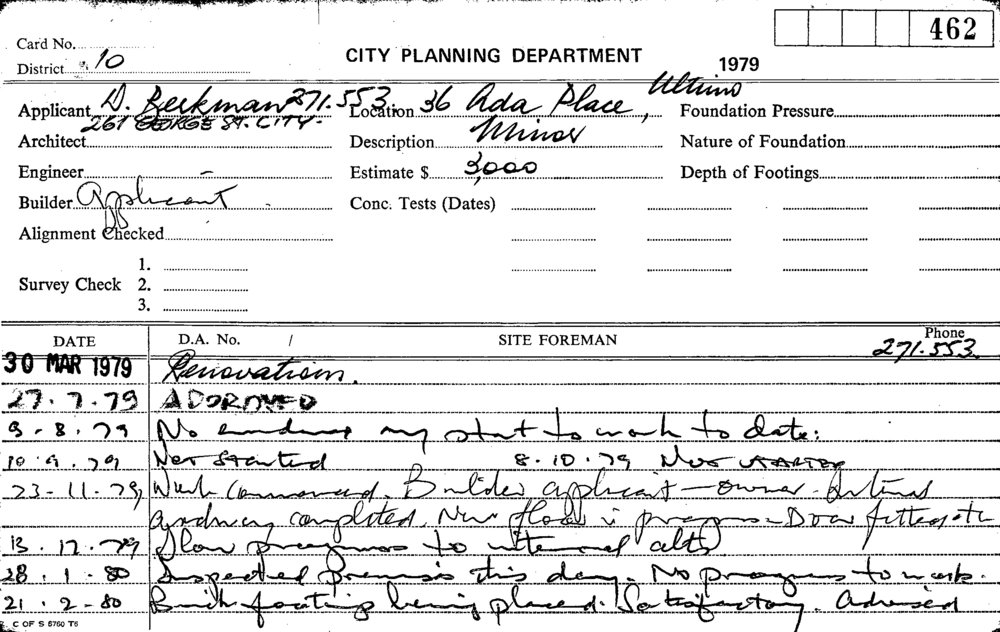 462
Card No.
District 10
CITY PLANNING DEPARTMENT
1979
Applicant D. Beekman 271.553 Location 36 Ada Place, Ultimo Foundation Pressure
261 GEORGE ST. CITY.
Architect Description Minor Nature of Foundation
Engineer - Estimate $ 3,000 Depth of Footings
Builder Applicant Conc. Tests (Dates)
Alignment Checked
1.
Survey Check 2.
3.
DATE D.A. No. / SITE FOREMAN Phone 271.553
30 MAR 1979 Renovations.
27.7.79 APPROVED
9.8.79 No evidence any start to work to date:
10.9.79 Not Started 8.10.79 Not STARTED
23.11.79, Work commenced. Builder applicant - owner. Internal
completed. New floor in progress - Door
13.12.79 Slow progress to internal alts
28.1.80 Inspected premises this day. No progress to work.
21.2-80 Brick footing being placed. Satisfactory. Advised
C OF S 5760 T6